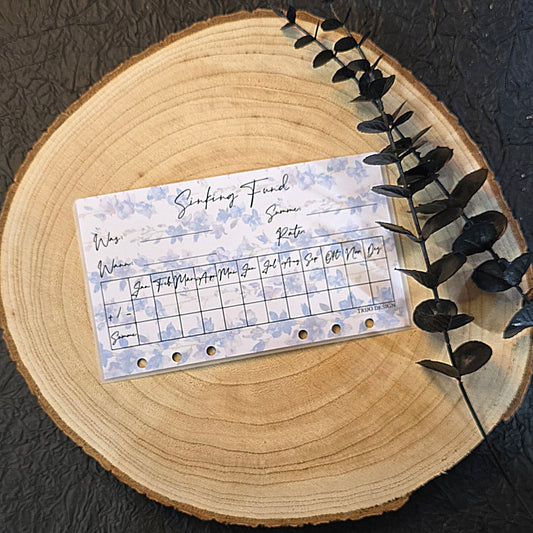 Sinking Fund
Was: Summe:
Wann: Rate:
Jan Feb Mär Apr Mai Jun Jul Aug Sep Okt Nov Dez
+ / -
Summe
TRIJO DESIGN